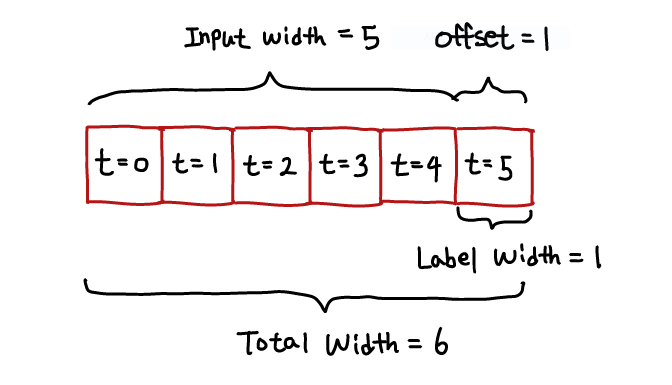 Input width = 5 offset = 1
t=0 t=1 t=2 t=3 t=4 t=5
Label Width = 1
Total Width = 6